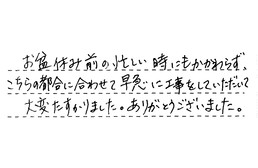 お盆休み前の忙しい時にもかかわらず、
こちらの都合に合わせて早急に工事をしていただいて
大変たすかりました。ありがとうございました。